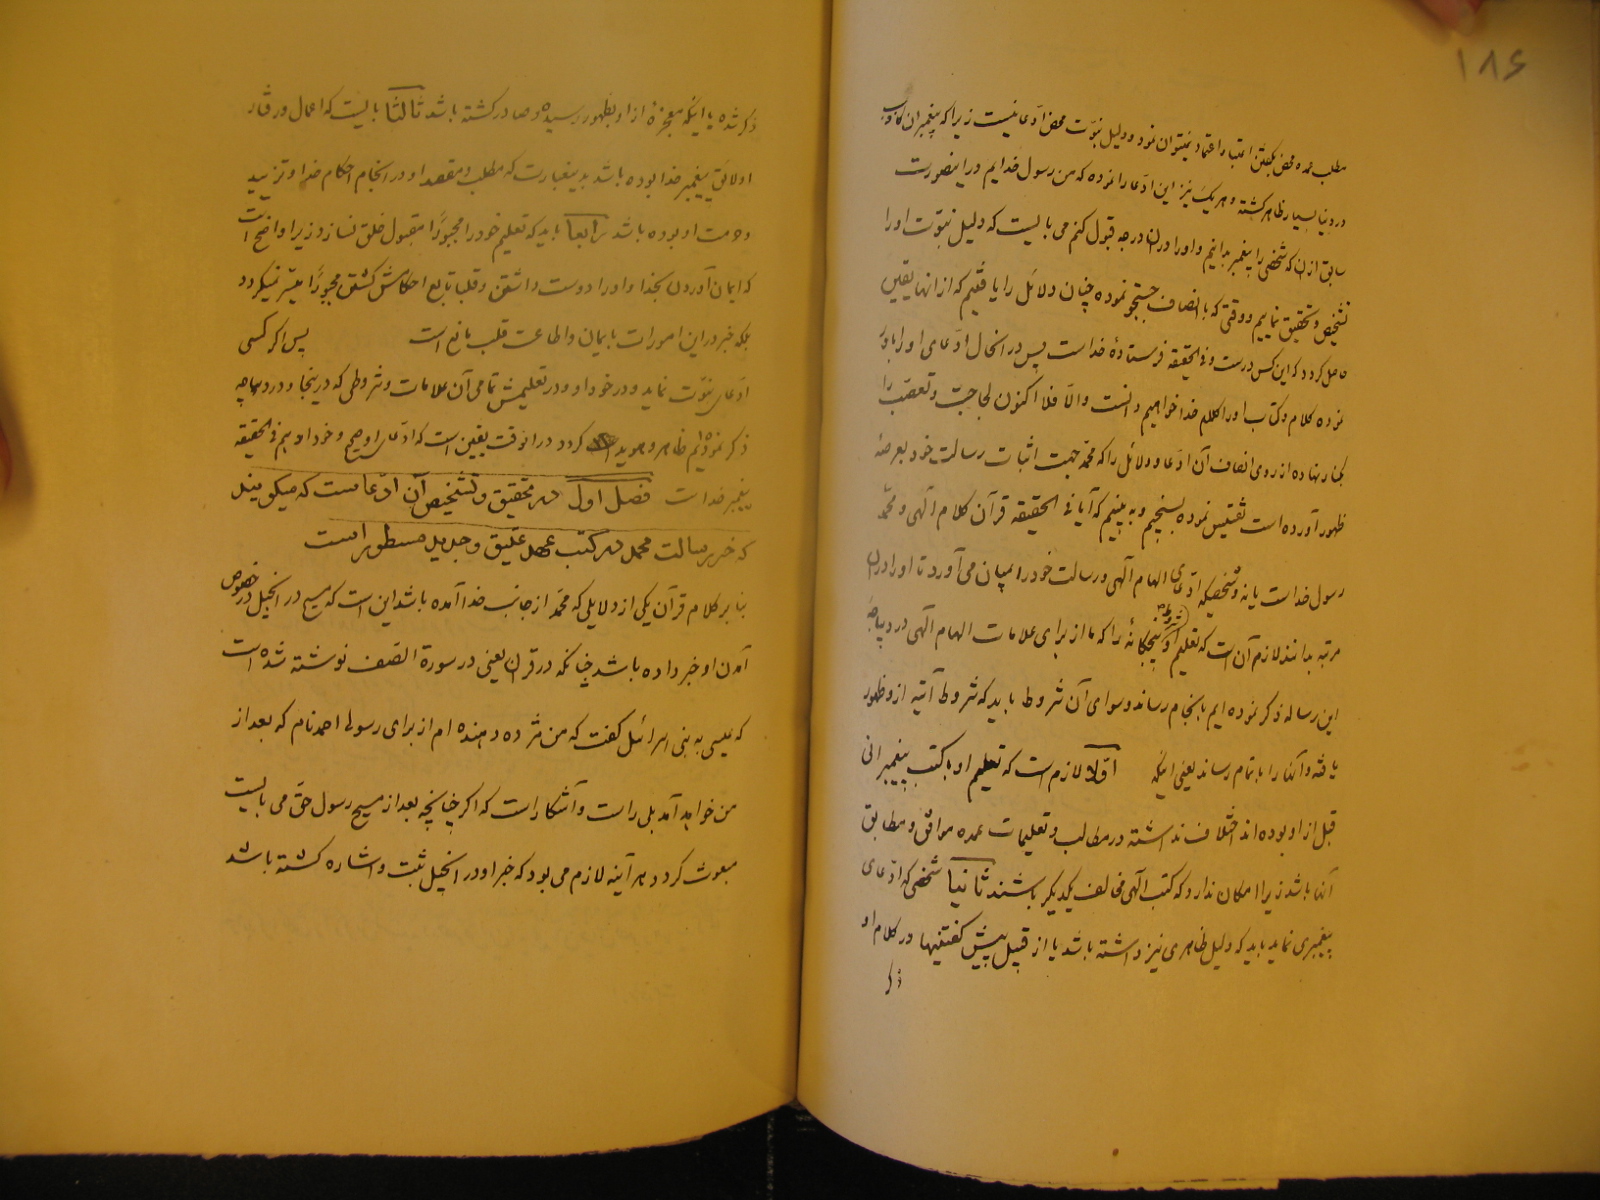 ۱۸۶
مطلب عمده محض بگفتن اعتبار و اعتماد نمیتوان نمود و دلیل نبوّت محض ادّعا نیست زیرا که پیغمبران کاذب
در دنیا بسیار ظاهر گشته و هر یک نیز این ادّعا را نموده که من رسول خدایم در اینصورت
سابق از ان که شخصی را پیغمبر بدانیم و او را در ان درجه قبول کنیم می بایست که دلیل نبوّت او را
تشخیص و تحقیق نماییم و وقتی که با انصاف جستجو نموده چنان دلائل را یافتیم که از انها یقین
حاصل گردد که این کس درست و فی الحقیقه فرستادهٔ خداست پس در انحال ادّعای او را باور
نموده کلام و کتاب او را کلام خدا خواهیم دانست والّا فلا اکنون لجاجت و تعصّب را
بکنار نهاده از روی انصاف آن ادّعا و دلائل را که محمّد جهت اثبات رسالت خود بعرصهٔ
ظهور آورده است تفتیش نموده بسنجیم و به بینیم که آیا فی الحقیقه قرآن کلام الهی و محمّد
رسول خداست یا نه و شخصیکه ادّعای الهام الهی و رسالت خود را بمیان می آورد تا او را در ان
مرتبه بدانند لازم آن است که تعلیم او شروط پنجگانهٔ را که ما از برای علامات الهام الهی در دیباجهٔ
این رساله ذکر نموده ایم بانجام رساند و سوای آن شروط باید که شروط آتیه از و ظهور
یافته و آنها را باتمام رساند یعنی اینکه اوّلا لازم است که تعلیم او با کتب پیغمبرانی
قبل از او بوده اند اختلاف نداشته در مطالب و تعلیمات عمده موافق و مطابق
آنها باشد زیرا امکان ندارد که کتب الهی مخالف یکدیگر باشند ثانیاً شخصی که ادّعای
پیغمبری نماید باید که دلیل ظاهری نیز داشته باشد یا از قبیل پیش گفتنیها در کلام او
ذکر
ذکر شده یا اینکه معجزهٔ از او بظهور رسیده و صادر گشته باشد ثالثاً بایست که اعمال و رفتار
او لایق پیغمبر خدا بوده باشد بدینعبارت که مطلب و مقصد او در انجام احکام خدا و تزیید
و حرمت او بوده باشد رابعاً باید که تعلیم خود را مجبوراً مقبول خلق نسازد زیرا واضح است
که ایمان آوردن بخدا و او را دوست داشتن و قلباً تابع احکامش گشتن مجبوراً میسّر نمیگردد
بلکه جبر در این امورات بایمان و اطاعت قلب مانع است پس اگر کسی
ادّعای نبوّت نماید و در خود او و در تعلیمش تمامی آن علامات و شروطی که در ینجا و در دیباجه
ذکر نموده ایم ظاهر و هویدا گردد در انوقت یقین است که ادّعای او صحیح و خود او هم فی الحقیقه
پیغمبر خداست فصل اول در تحقیق و تشخیص آن ادّعاست که میگویند
که خبر رسالت محمد در کتب عهد عتیق و جدید مسطور است
بنا بر کلام قرآن یکی از دلایلی که محمّد از جانب خدا آمده باشد این است که مسیح در انجیل در خصوص
آمدن او خبر داده باشد چنانکه در قرآن یعنی در سورة الصّف نوشته شده است
که عیسی به بنی اسرائل گفت که من مژده دهنده ام از برای رسولی احمد نام که بعد از
من خواهد آمد بلی راست و آشکار است که اگر چنانچه بعد از مسیح رسول حقّ می بایست
مبعوث گردد هر آینه لازم می بود که خبر او در انجیل ثبت و اشاره گشته باشد